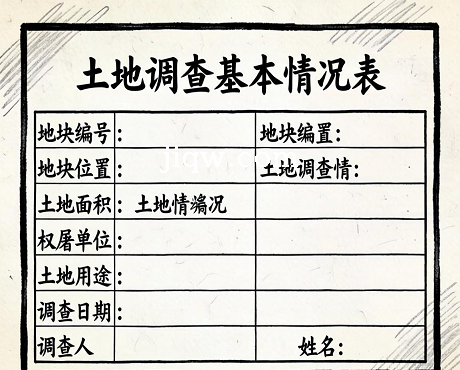 土地调查基本情况表
地块编号： 地块编置：
地块位置： 土地调查情：
土地面积：土地情㵢况
权屠单位：
土地用途：
调查日期：
调查人 姓名：